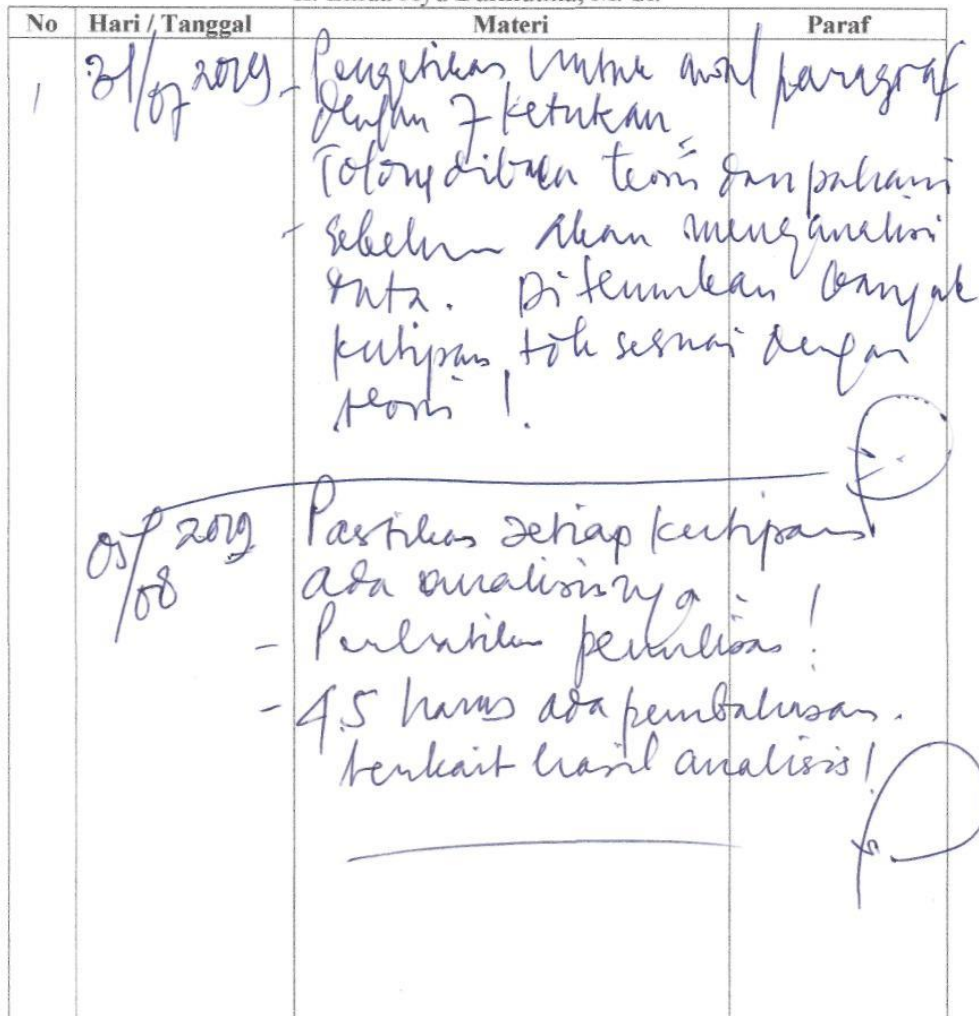 No Hari / Tanggal Materi Paraf
1 31/07 2019 - Pengetikan untuk awal paragraf
dengan 7 ketukan
Tolong dibaca teori dan pahami
- sebelum akan menganalisi
data. Ditemukan banyak
kutipan tdk sesuai dengan
teori !.
05/08 2019 Pastikan setiap kutipan
ada analisisnya !
- Perhatikan penulisan !
- 4.5 harus ada pembahasan.
terkait hasil analisis !